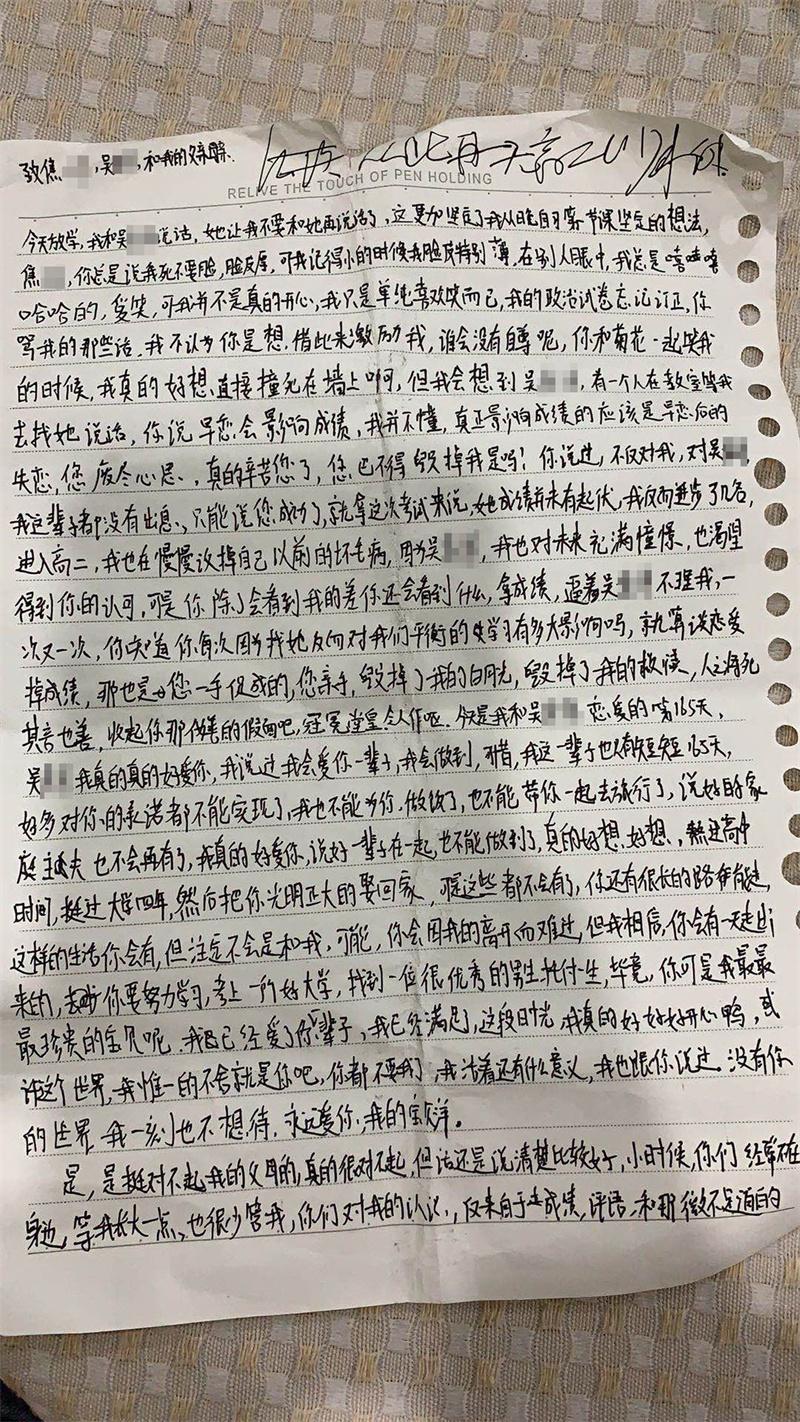 致焦，吴，和我的父亲母亲.
RELIVE THE TOUCH OF PEN HOLDING
今天放学，我和吴说话，她让我不要和她再说话了，这更加坚定了我从晚自习第一节课坚定的想法，
焦，你总是说我死不要脸，脸皮厚，可我记得小的时候我脸皮特别薄，在别人眼中，我总是嘻嘻嘻
哈哈的，爱笑，可我并不是真的开心，我只是单纯喜欢笑而已，我的政治试卷忘记订正，你
骂我的那些话，我不认为你是想借此来激励我，谁会没有自尊呢，你和菊花一起笑我
的时候，我真的好想直接撞死在墙上啊，但我会想到吴，有一个人在教室等我
去找她说话，你说早恋会影响成绩，我并不懂，真正影响成绩的应该是早恋后的
失恋，您废尽心思，真的辛苦您了，您巴不得毁掉我是吗！你说过，不仅对我，对吴，
我这辈子都没有出息，只能说您成功了，就拿这次考试来说，她成绩并未有起伏，我反而进步了几名，
进入高二，我也在慢慢改掉自己以前的坏毛病，因为吴，我也对未来充满憧憬，也渴望
得到你的认可，可是你除了会看到我的差你还会看到什么，拿成绩，逼着吴不理我，一
次又一次，你知道你每次因为找她反而对我们平衡的学习有多大影响吗，就算谈恋爱
掉成绩，那也是您一手促成的，您亲手，毁掉了我的白月光，毁掉了我的救赎，人之将死
其言也善，收起你那伪善的假面吧，冠冕堂皇，令人作呕。今天是我和吴恋爱的第165天，
吴我真的真的好爱你，我说过我会爱你一辈子，我会做到，可惜，我这一辈子也只有短短165天，
好多对你的承诺都不能实现了，我也不能为你做饭了，也不能带你一起去旅行了，说好的家
庭主夫也不会再有了，我真的好爱你，说好一辈子在一起，也不能做到了，真的好想好想，熬过高中
时间，挺过大学四年，然后把你光明正大的娶回家，可这些都不会有了，你还有很长的路要走，
这样的生活你会有，但注定不会是和我，可能，你会因我的离开而难过，但我相信，你会有一天走出
来的，你要努力学习，考上一所好大学，找到一位很优秀的男生托付一生，毕竟，你可是我最最
最珍贵的宝贝呢，我已经爱了你一辈子，我已经满足了，这段时光，我真的好好好开心鸭，或
许这个世界，我惟一的不舍就是你吧，你都不要我了，我活着还有什么意义，我也跟你说过，没有你
的世界，我一刻也不想待，永远爱你，我的宝洋。
是，是挺对不起我的父母的，真的很对不起，但话还是说清楚比较好，小时候，你们经常不在
身边，等我长大一点，也很少管我，你们对我的认识，仅来自于成绩，评语，和那微不足道的